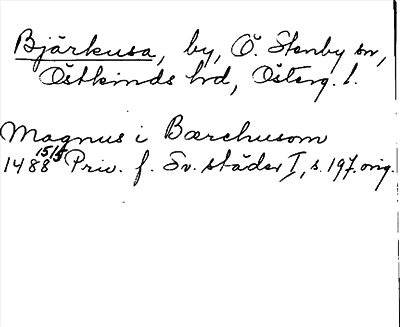 Bjärkusa, by, Ö. Stenby sn,
Östkinds hd, Österg. l.
Magnus i Bærchusom
1488 15/5 Priv. f. Sv. städer I, s. 197. orig.